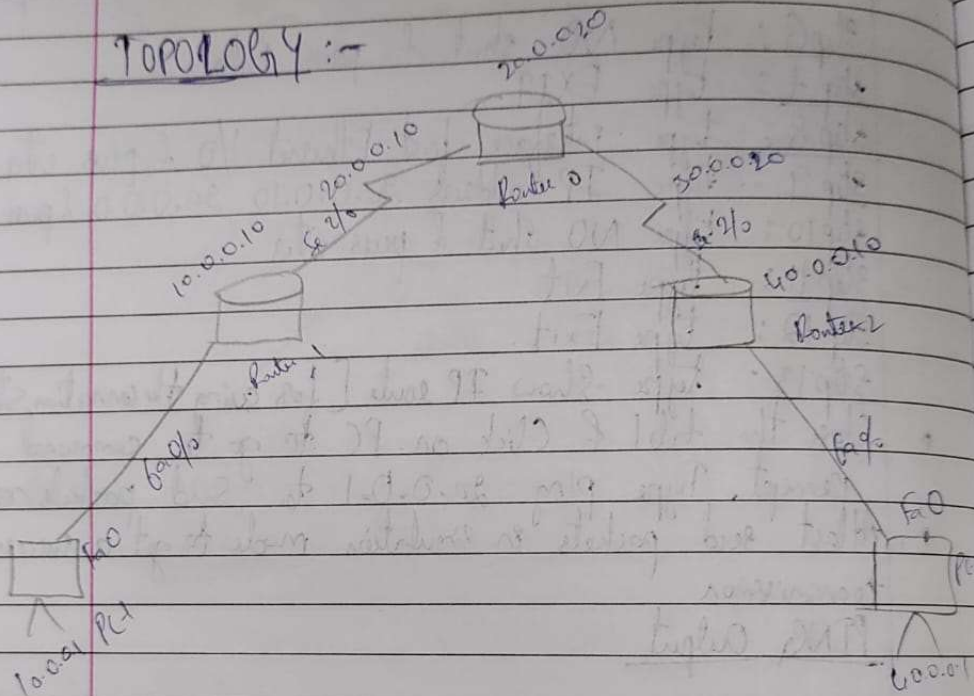 TOPOLOGY :-
20.0.020
20.0.0.10
Se 2/0
10.0.0.10
Router 0
30.0.020
Se 2/0
40.0.0.10
Router 1
Router 2
Fa0/0
Fa0/0
Fa0
Fa0
PC1
PC
10.0.01
40.0.0.1